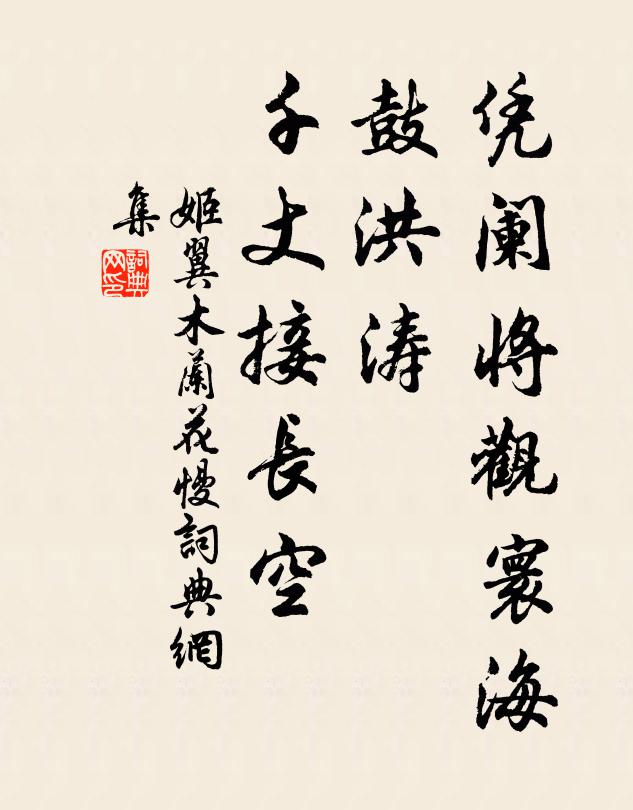 凭阑将觀寰海
鼓洪涛
千丈接長空
姬翼木蘭花慢詞典網
集
詞典
网印